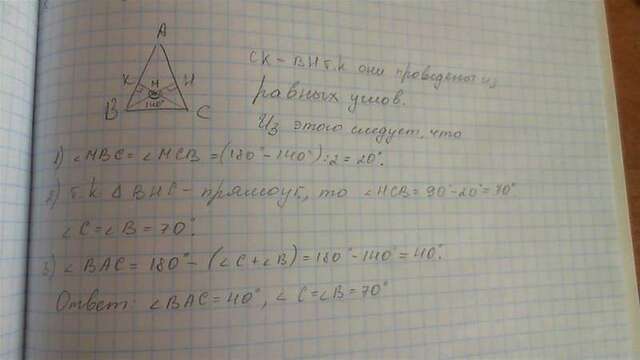 A
K
M
H
B
140°
C
CK = BH т.к они проведены из
равных углов.
Из этого следует, что
1) ∠MBC = ∠MCB = (180° - 140°) : 2 = 20°.
2) т.к Δ BHC - прямоуг., то ∠HCB = 90° - 20° = 70°
∠C = ∠B = 70°.
3) ∠BAC = 180° - (∠C + ∠B) = 180° - 140° = 40°.
Ответ: ∠BAC = 40°, ∠C = ∠B = 70°